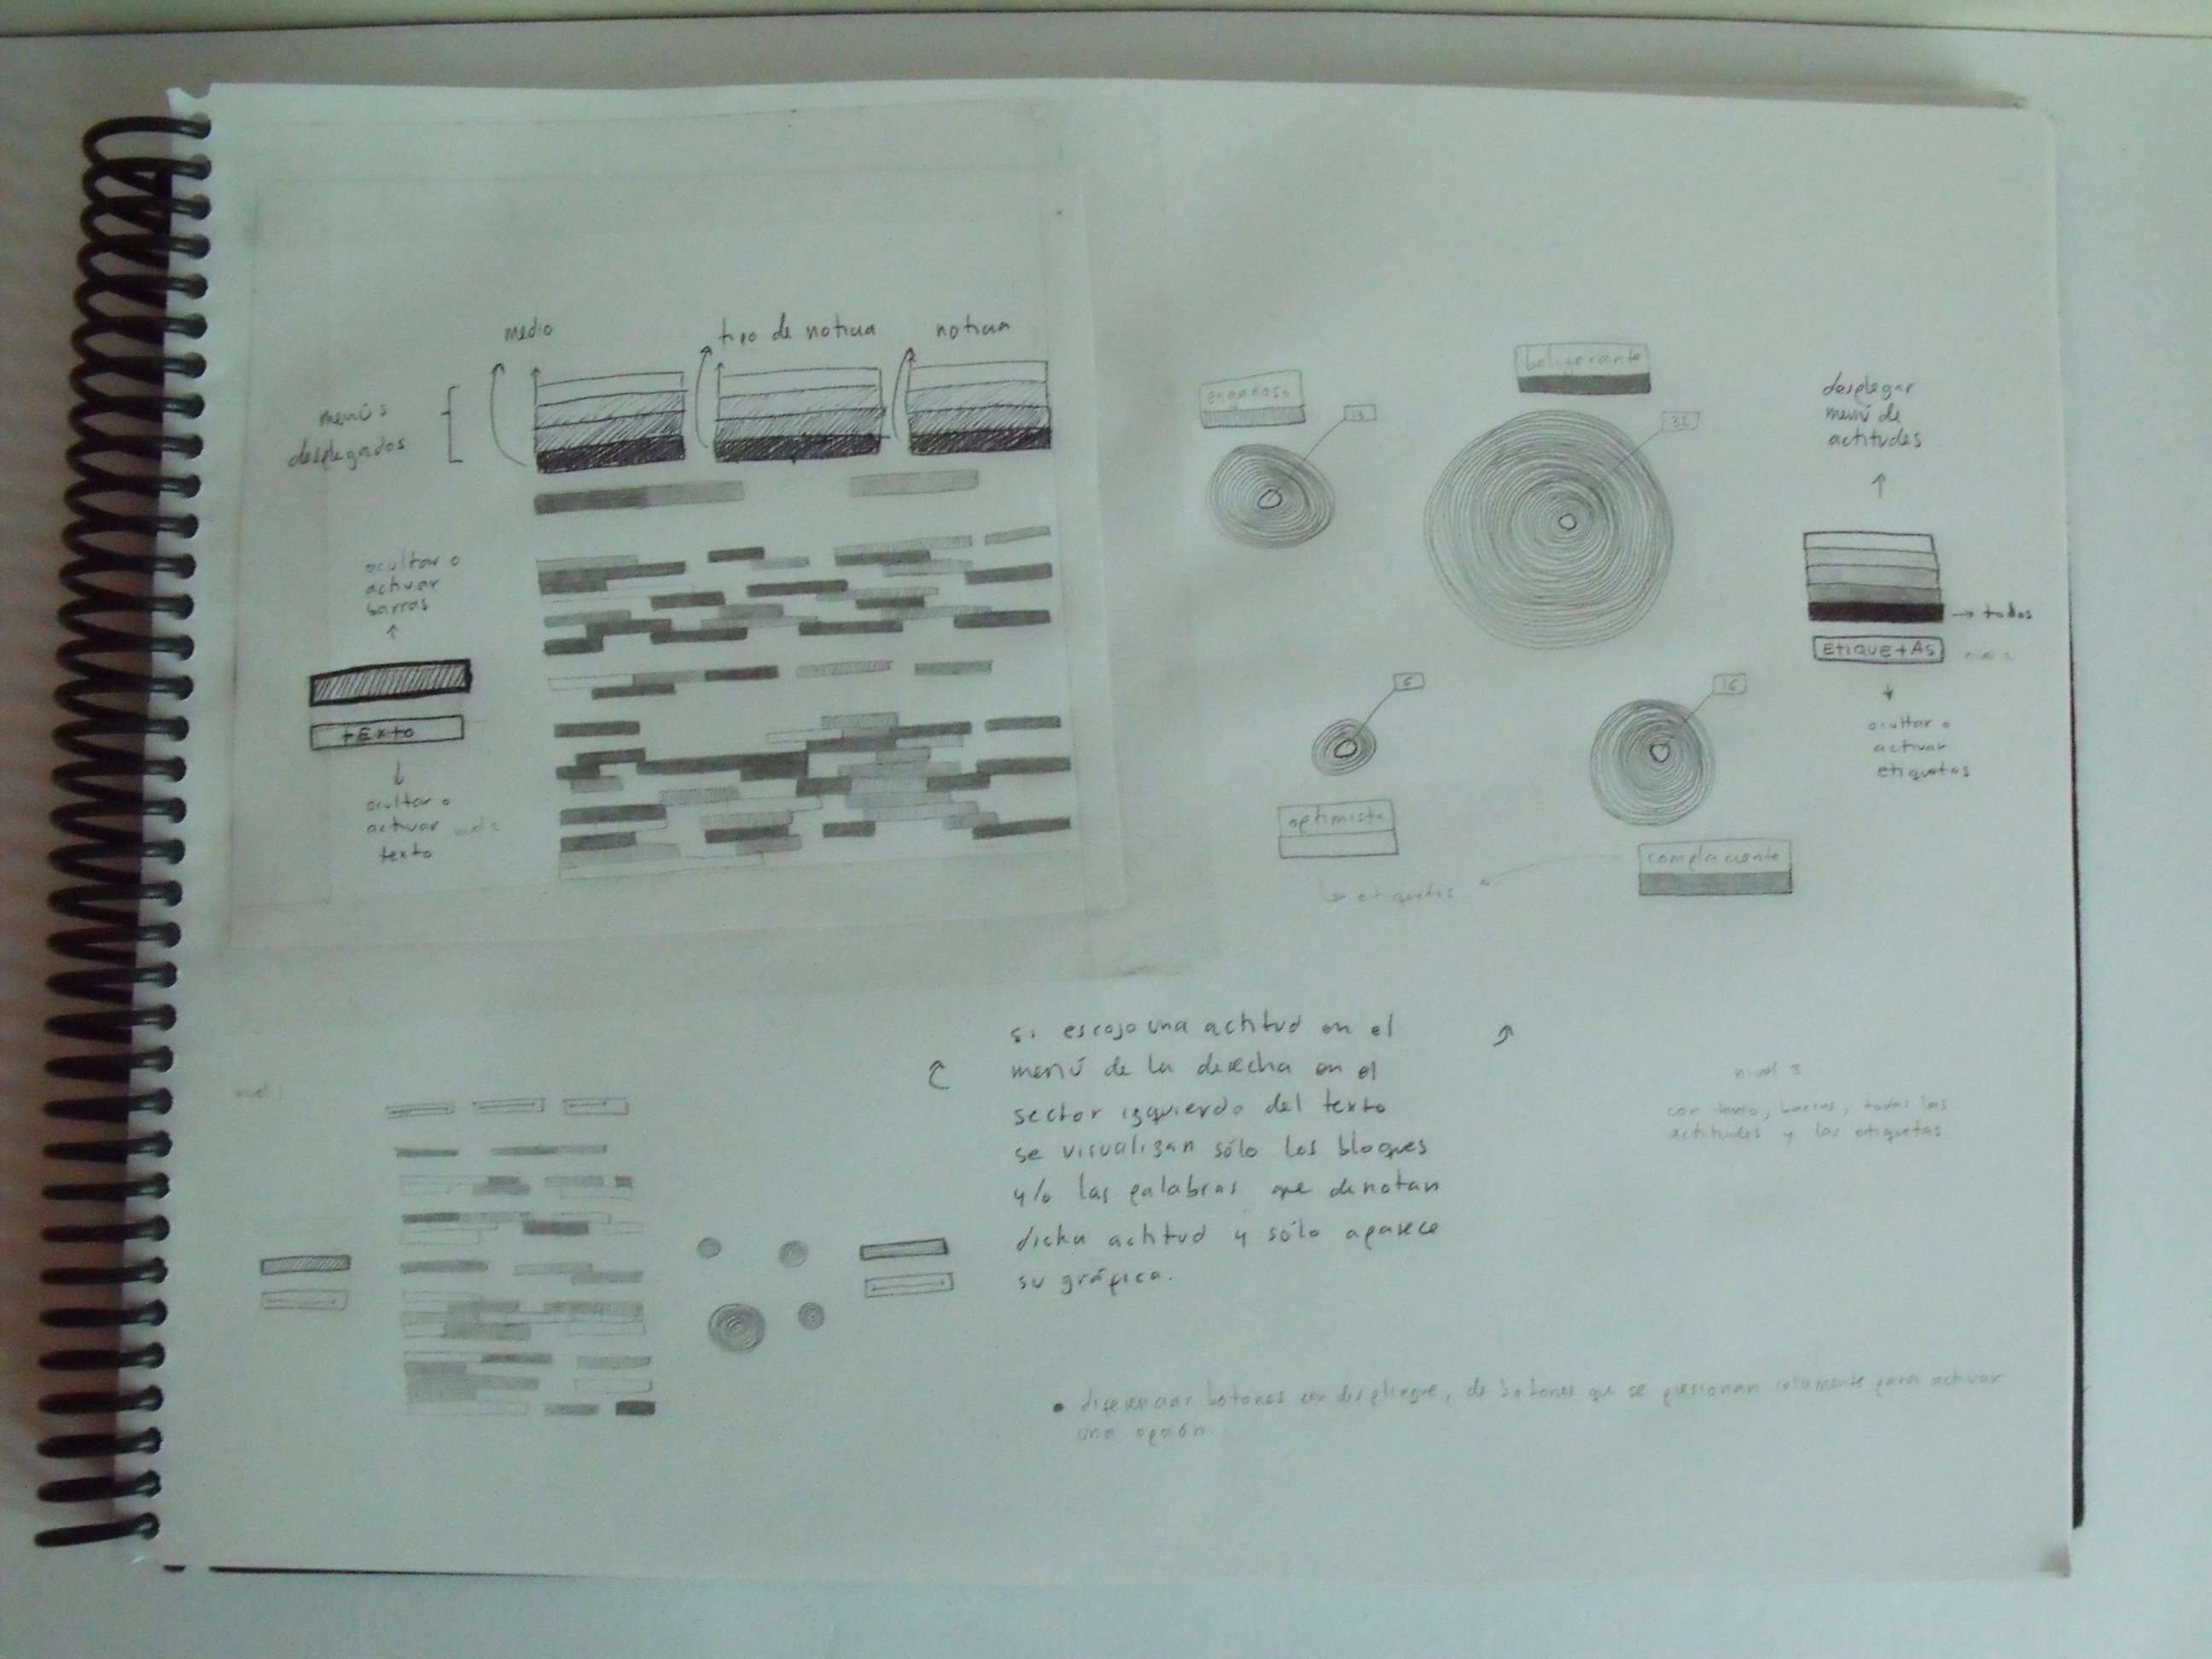 medio
tipo de noticia
noticia
menús
desplegados
ocultar o
activar
barras
tExto
ocultar o
activar
texto
engañoso
beligerante
13
32
desplegar
menú de
actitudes
todas
EtIQUEtAS
ocultar o
activar
etiquetas
6
16
optimista
complaciente
etiquetas
si escojo una actitud en el
menú de la derecha en el
sector izquierdo del texto
se visualizan sólo los bloques
y/o las palabras que denotan
dicha actitud y sólo aparece
su gráfica.
nivel 3
con texto, barras, todas las
actitudes y las etiquetas
nivel 1
• diferenciar botones con despliegue, de botones que se presionan solamente para activar
una opción.